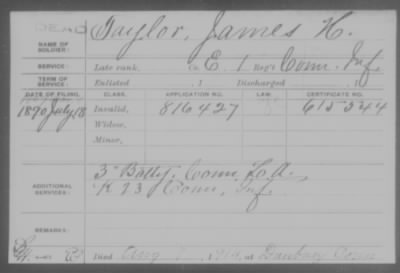 DEAD
Taylor, James H.
NAME OF SOLDIER:
SERVICE: Late rank, Co. E, 1 Reg't Conn. Inf.
TERM OF SERVICE: Enlisted 1 Discharged 1
DATE OF FILING. CLASS. APPLICATION NO. LAW. CERTIFICATE NO.
1890 July 18 Invalid, 816427 615544
Widow,
Minor,
ADDITIONAL SERVICES:
3" Batty. Conn. L.A.
K 23 Conn. Inf.
REMARKS:
Died Aug 1914, at Danbury Conn